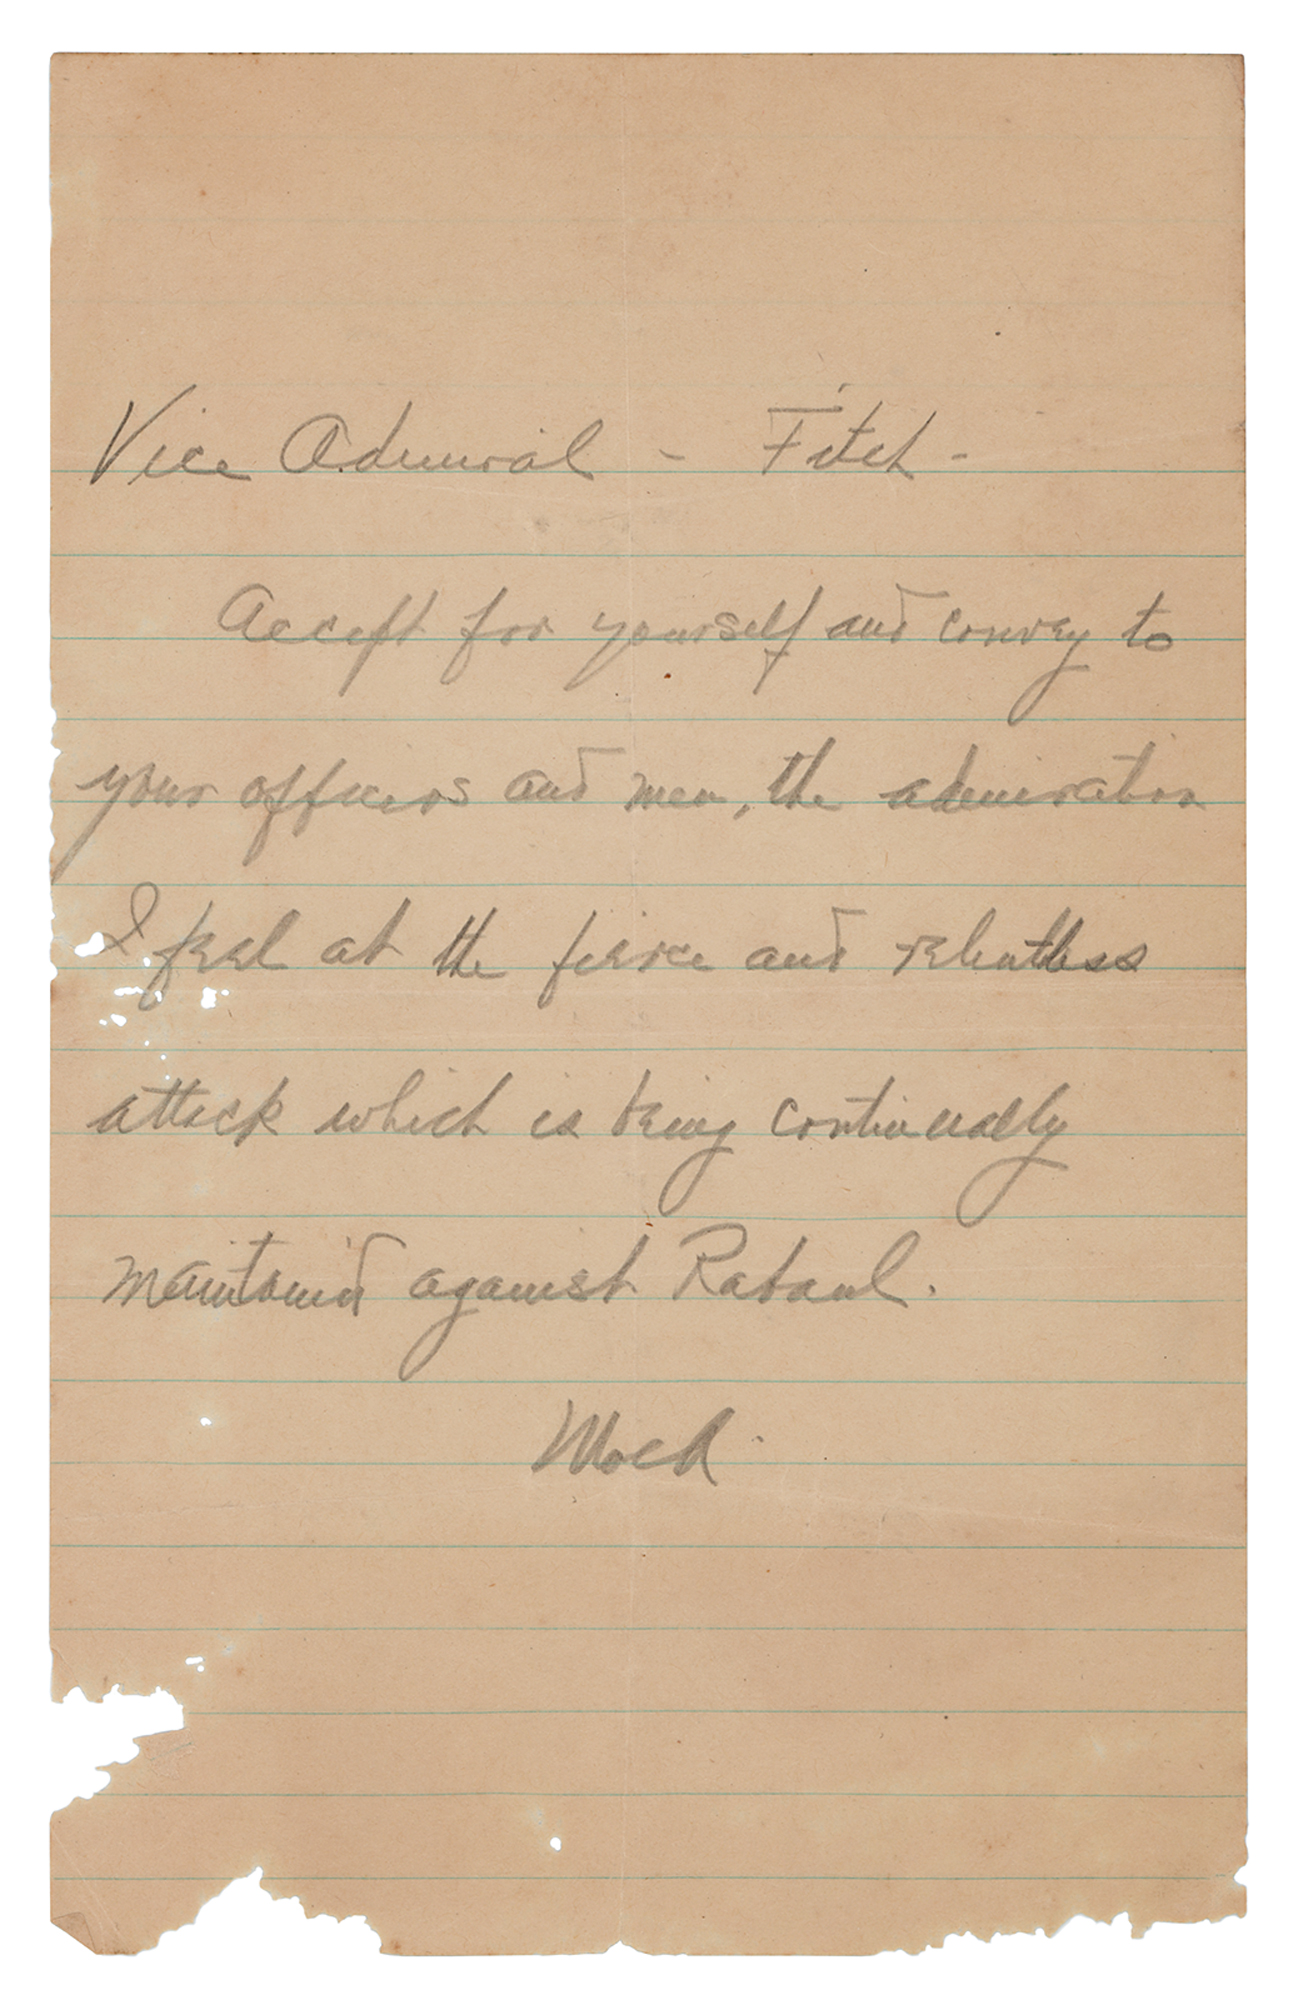 Vice Admiral - Fitch -
Accept for yourself and convey to
your officers and men, the admiration
I feel at the fierce and relentless
attack which is being continually
maintained against Rabaul.